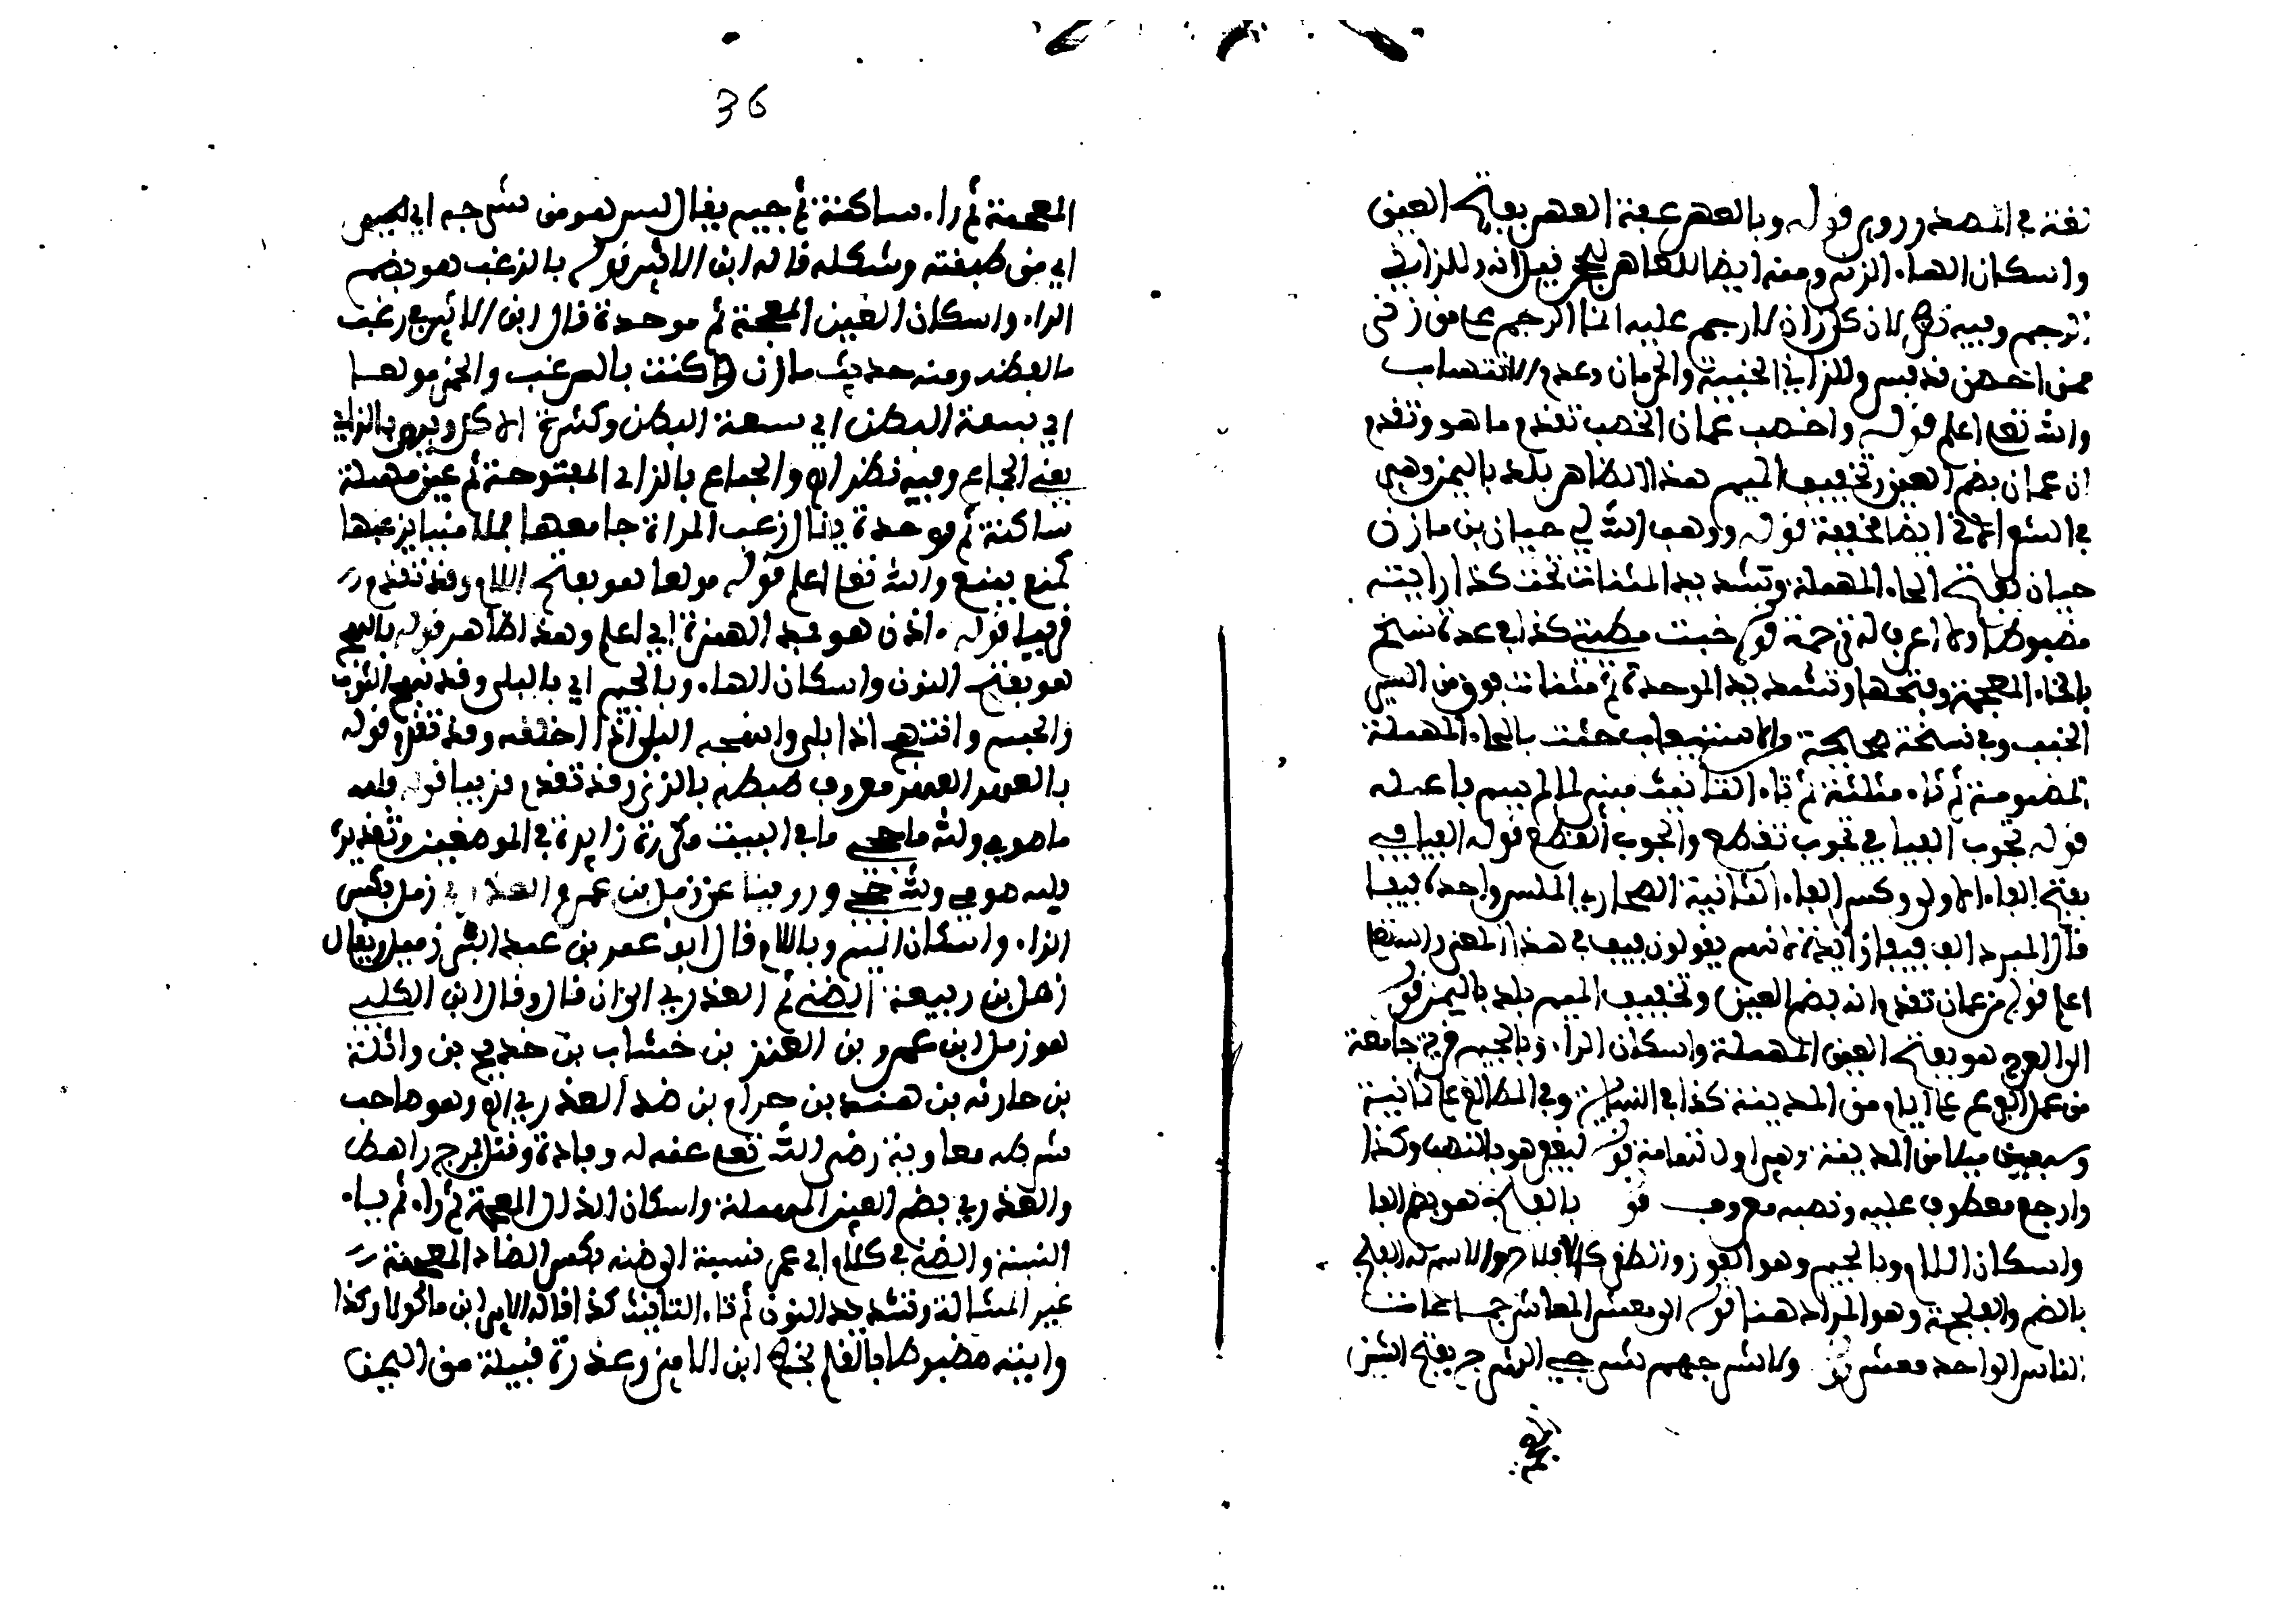 تقنة في المصدر وروي قوله وبالعهر عفة العهر بفتح العين
واسكان الهاء الزنى ومنه ايضا للعاهر الحجر فيل انه للزاني
ترجم وفيه نظر لان كل زان لا رجم عليه انما الرجم على من زنى
ممن احصن قد فسر وللزاني الخيبة والحرمان وعدم الانتساب
والله تعلى اعلم قوله واخصب عمان الخصب تقدم ما هو وتقدم
ان عمان بضم العين وتخفيف الميم هذا الظاهر بلد باليمن وهي
في الشعر الاتي ايضا مخففة قوله ووهب الله لي حيان بن مازن
حيان بفتح الحاء المهملة وتشديد المثنات تحت كذا رايته
مضبوطا ولا اعرف له ترجمة قوله خبت مطيتي كذا في عدة نسخ
بالخاء المعجمة وفتحها وتشديد الموحدة ثم مثنات فوق من السير
الخبب وفي نسخة صحيحة والاستيعاب حثت بالحاء المهملة
المضمومة ثم ثاء مثلثة ثم تاء التانيث مبني لما لم يسم فاعله
قوله تجوب الفيافي تجوب تقطع والجوب القطع قوله الفيافي
بفتح الفاء الاولى وكسر الفاء الثانية الصحاري الملس واحدة فيفا
قال المبرد الف فيفا زايدة لانهم يقولون فيف في هذا المعنى والله تعلى
اعلم قوله من عمان تقدم انه بضم العين وتخفيف الميم بلد باليمن قوله
الى العرج هو بفتح العين المهملة واسكان الراء وبالجيم قرية جامعة
من عمل الفرع على ايام من المدينة كذا في النهاية وفي المطالع على ثمانية
وسبعين ميلا من المدينة وهي اول تهامة قوله ليغفر هو بالنصب وكذا
وارجع معطوف عليه ونصبه معروف قوله بالفلج هو بضم الفاء
واسكان اللام وبالجيم وهو الفوز والظفر كالافلاح والاسم له الفلج
بالضم والفلجة وهو المراد هنا قوله الى معشر المعاشر جماعات
الناس الواحد معشر قوله ولا شرجهم شرجي الشرج بفتح الشين
بفتح
36
المعجمة ثم راء ساكنة ثم جيم يقال ليس هو من شرجه اي ليس
اي من طبقته وشكله قاله ابن الاثير قوله بالرغب هو بضم
الراء واسكان الغين المعجمة ثم موحدة قال ابن الاثير في رغب
ما لفظه ومنه حديث مازن وكنت بالرغب والخمر مولعا
اي بسعة البطن اي سعة البطن وكثرة الاكل ويروى بالزاي
يعني الجماع وفيه نظر اه والجماع بالزاي المفتوحة ثم عين مهملة
ساكنة ثم موحدة يقال زعب المراة جامعها فملا منيا يزعبها
كمنع يمنع والله تعلى اعلم قوله مولعا هو بفتح اللام وقد تقدم
قريبا قوله ءاذن هو بمد الهمزة اي اعلم وهذا ظاهر قوله بالنهج
هو بفتح النون واسكان الهاء وبالجيم اي بالبلى وقد نهج الثوب
والجسم وانهج اذا بلى وانهجه البلى اذا اخلقه وقد تقدم قوله
بالعهر العهر معروف ضبطه بالزنى وقد تقدم قريبا قوله فلله
ما صومي ولله ما حجي ما في البيت مكررة زايدة في الموضعين وتقديره
فلله صومي ولله حجي وروينا عن زمل بن عمرو العذري زمل بكسر
الزاء واسكان الميم وباللام قال ابو عمر بن عبد البر زميل ويقال
زمل بن ربيعة الضني ثم العذري الى ان قال وقال ابن الكلبي
هو زمل ابن عمرو بن العنز بن خشاب بن خديج بن واثلة
بن حارثة بن هند بن حرام بن ضنة العذري اه وهو صاحب
شرطة معاوية رضي الله تعلى عنه له وفادة وقتل بمرج راهط
والعذري بضم العين المهملة واسكان الذال المعجمة ثم راء ثم ياء
النسبة والضني في كلام ابي عمر نسبة الى ضنة بكسر الضاد المعجمة
غير المشالة وتشديد النون ثم تاء التانيث كذا قاله الامير ابن ماكولا وكذا
رايته مضبوطا بالقلم بخط ابن الامين وعذرة قبيلة من اليمن